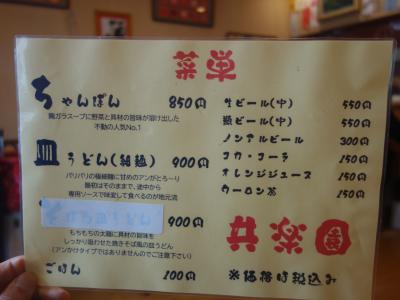 菜栄
ちゃんぽん 850円
鶏ガラスープに野菜と具材の旨味が溶け出した
不動の人気No.1
皿うどん(細麺) 900円
パリパリの極細麺に甘めのアンがとろ〜り
最初はそのままで、途中から
専用ソースで味変して食べるのが地元流
900円
もちもちの太麺に具材の旨味を
しっかり吸わせた焼きそば風の皿うどん
(アンかけタイプではありませんのでご注意下さい)
ごはん 100円
生ビール(中) 550円
瓶ビール(中) 550円
ノンアルビール 300円
コカ・コーラ 150円
オレンジジュース 150円
ウーロン茶 150円
共楽
※価格は税込み